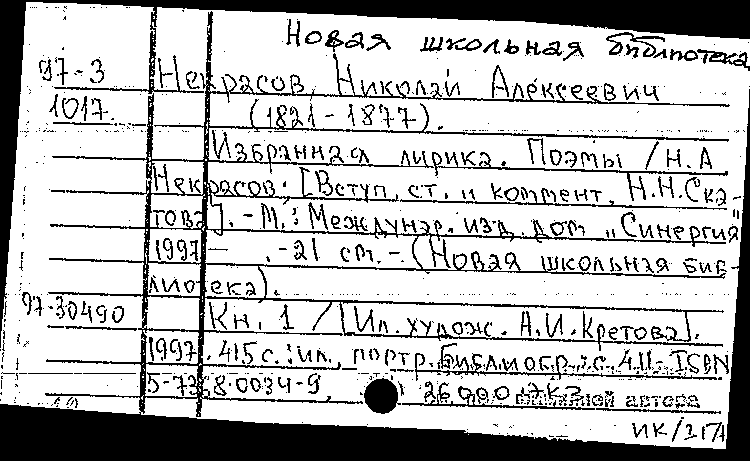 Новая школьная библиотека
97-3 Некрасов, Николай Алексеевич
1017. (1821-1877).
Избранная лирика. Поэмы / Н.А
Некрасов; [Вступ. ст. и коммент. Н.Н.Ска-
това]. - М.: Междунар. изд. дом „Синергия"
1997 - . -21 cm. - (Новая школьная биб-
лиотека).
97-30490 Кн. 1 / [Ил. худож. А.И.Кретова].
1997. 415 с.: ил., портр. Библиогр.: с. 411. - ISBN
5-7368-0034-9.
автора